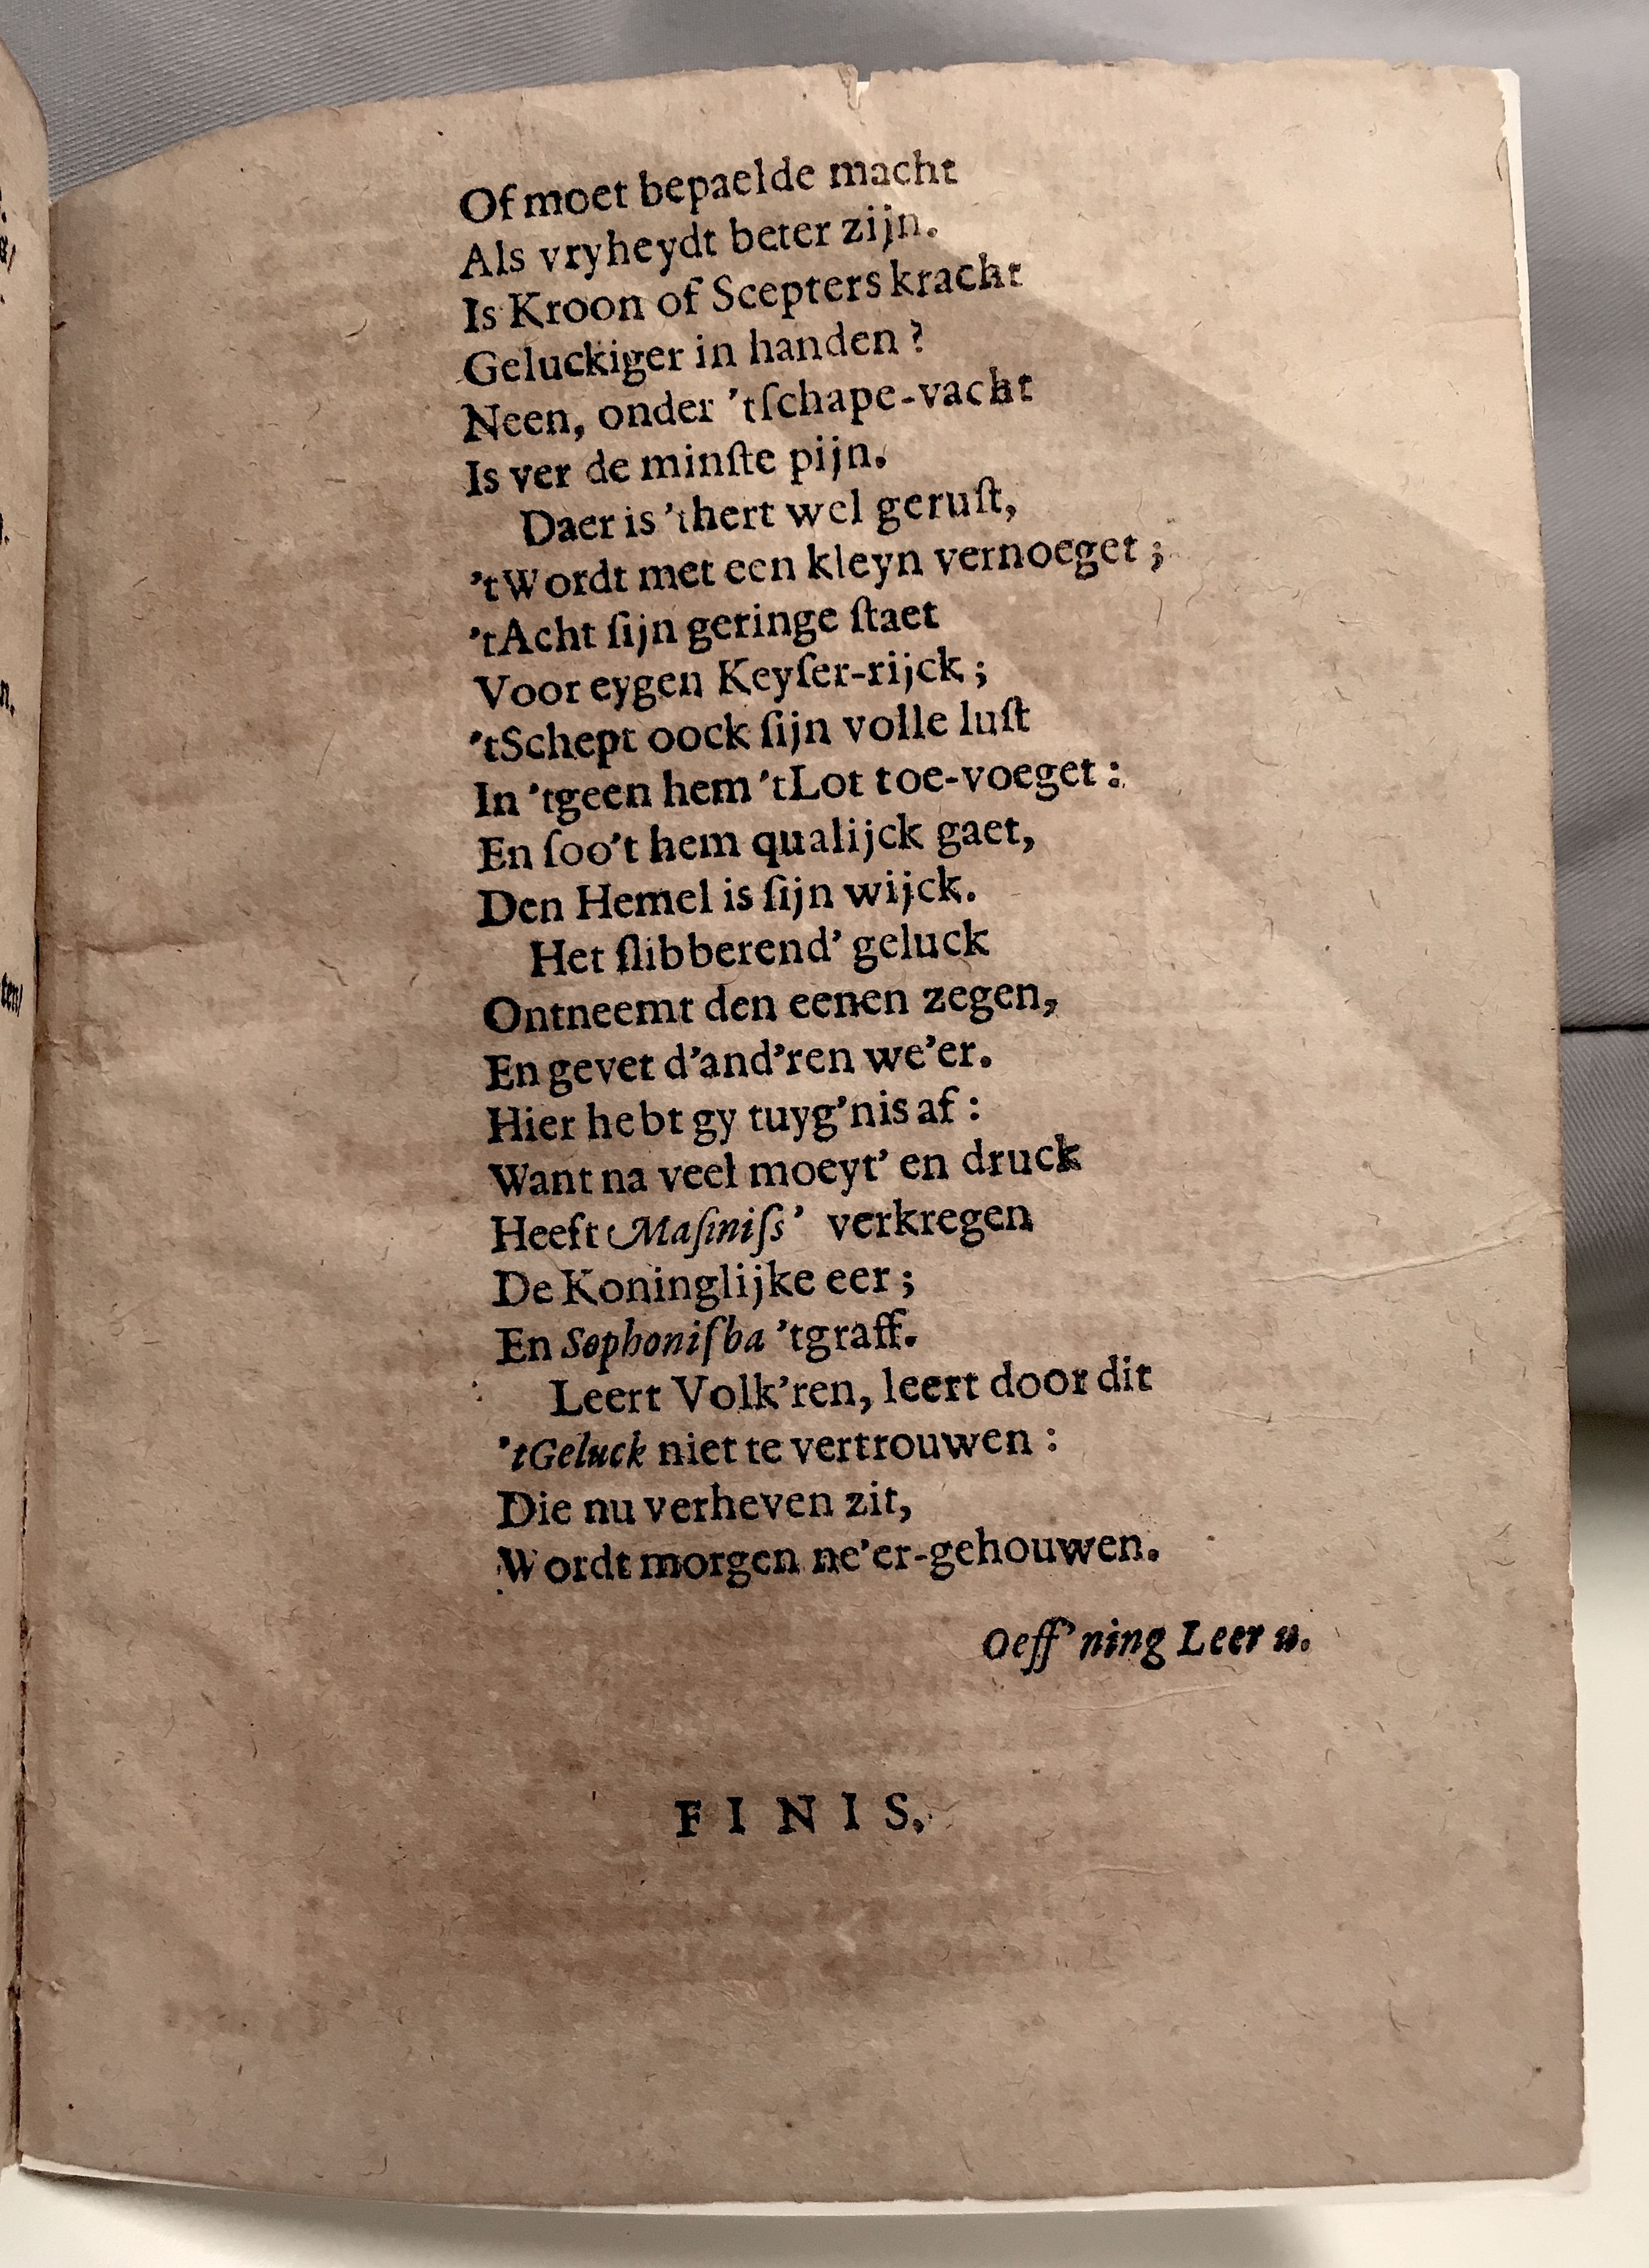 Of moet bepaelde macht
Als vryheydt beter zijn.
Is Kroon of Scepters kracht
Geluckiger in handen?
Neen, onder 'tſchape-vacht
Is ver de minſte pijn.
Daer is 'thert wel geruſt,
'tWordt met een kleyn vernoeget;
'tAcht ſijn geringe ſtaet
Voor eygen Keyſer-rijck;
'tSchept oock ſijn volle luſt
In 'tgeen hem 'tLot toe-voeget:
En ſoo't hem qualijck gaet,
Den Hemel is ſijn wijck.
Het ſlibberend' geluck
Ontneemt den eenen zegen,
En gevet d'and'ren we'er.
Hier hebt gy tuyg'nis af:
Want na veel moeyt' en druck
Heeft Maſiniſs' verkregen
De Koninglijke eer;
En Sophoniſba 'tgraff.
Leert Volk'ren, leert door dit
'tGeluck niet te vertrouwen:
Die nu verheven zit,
Wordt morgen ne'er-gehouwen.
Oeff'ning Leer u.
FINIS.